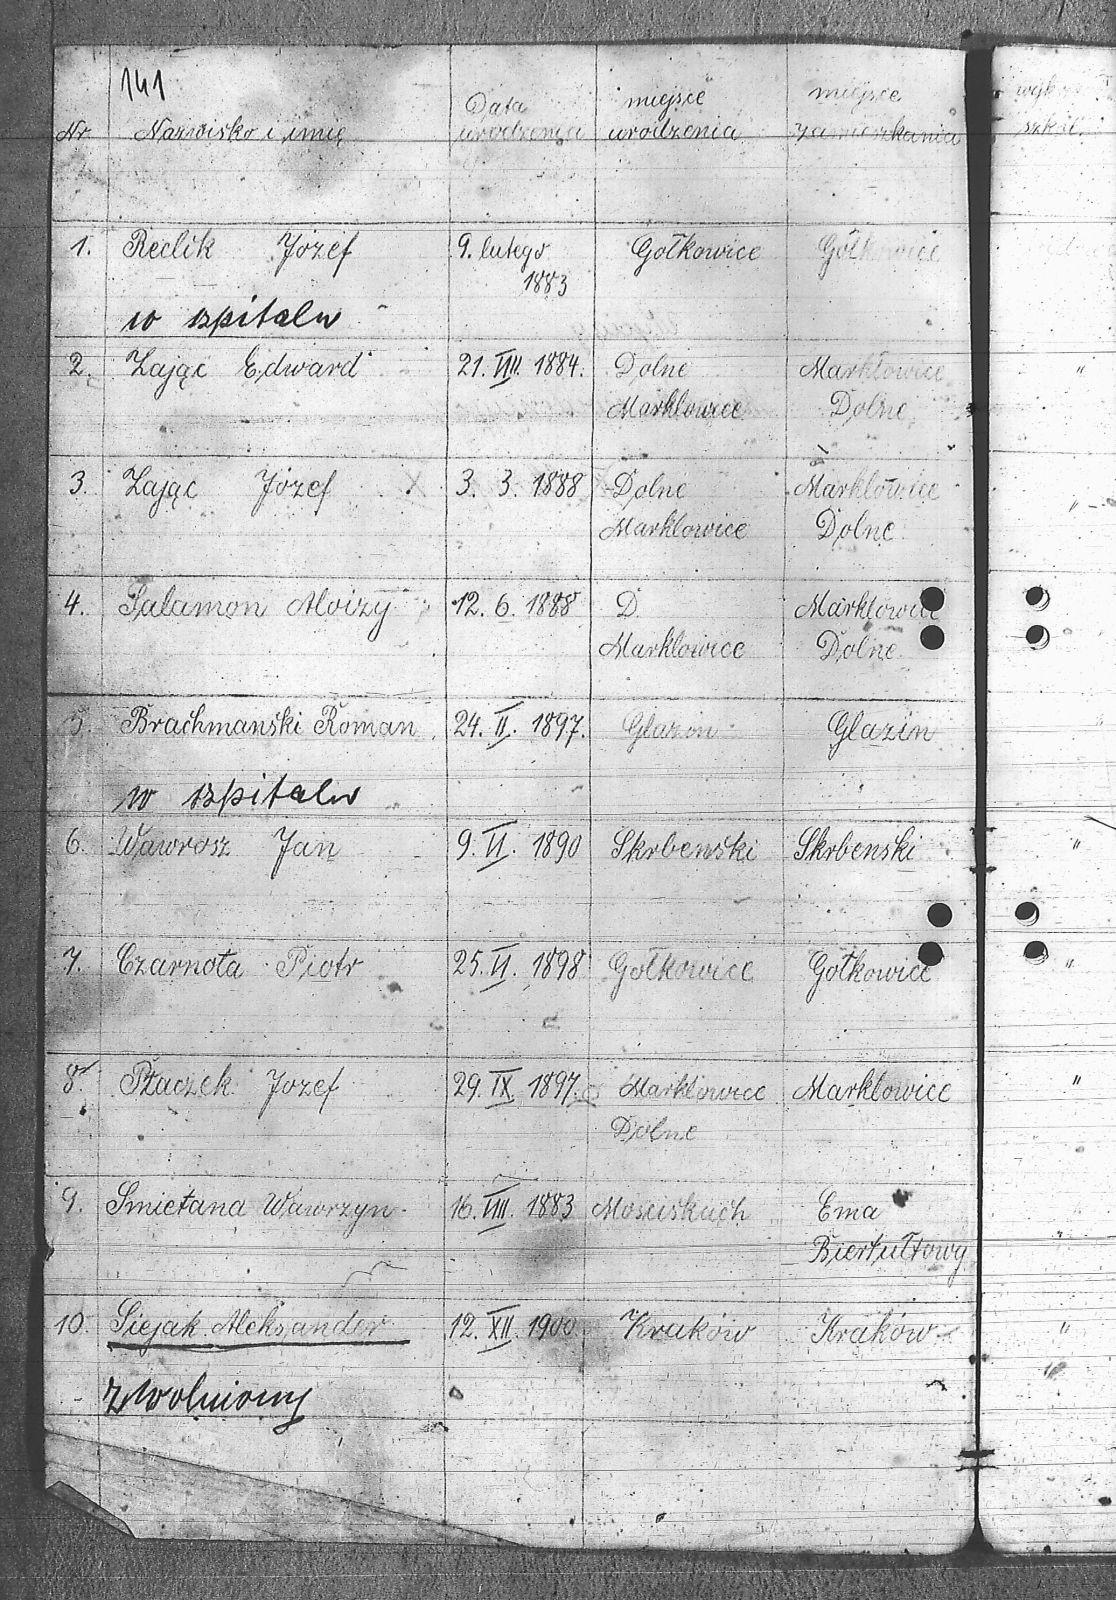 141
Nr. Nazwisko i imię Data urodzenia miejsce urodzenia miejsce zamieszkania
1. Reclik Józef 9. lutego Gołkowice Gołkowice
1883
w szpitalu
2. Zając Edward 21. VIII. 1884. Dolne Markłowice "
Marklowice Dolne
3. Zając Józef X 3. 3. 1888 Dolne Marklowice "
Marklowice Dolne
4. Salamon Aloizy 12. 6. 1888 D. Marklowice
Marklowice Dolne
5. Brachmanski Roman 24. II. 1897. Glazin Glazin
w szpitalu
6. Wawrosz Jan 9. VI. 1890 Skrbenski Skrbenski "
7. Czarnota Piotr 25. VI. 1898 Gołkowice Gołkowice "
8. Ptaczek Jozef 29. IX. 1897. Marklowice Marklowice "
Dolne
9. Smietana Wawrzyn 16. VIII. 1883 Mosciskach Ema "
Biertułtowy
10. Siejak Aleksander 12. XII. 1900 Kraków Kraków "
zwolniony